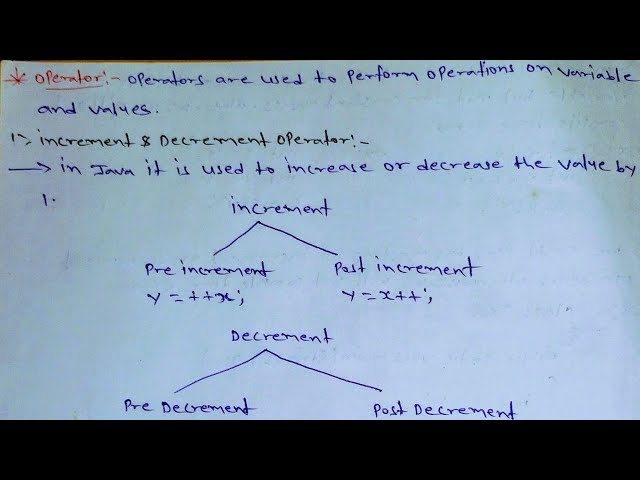 * Operator:- Operators are used to perform operations on variable
and values.
1> increment & Decrement Operator:-
→ in Java it is used to increase or decrease the value by
1.
increment
Pre increment Post increment
y = ++x; y = x++;
Decrement
Pre Decrement Post Decrement